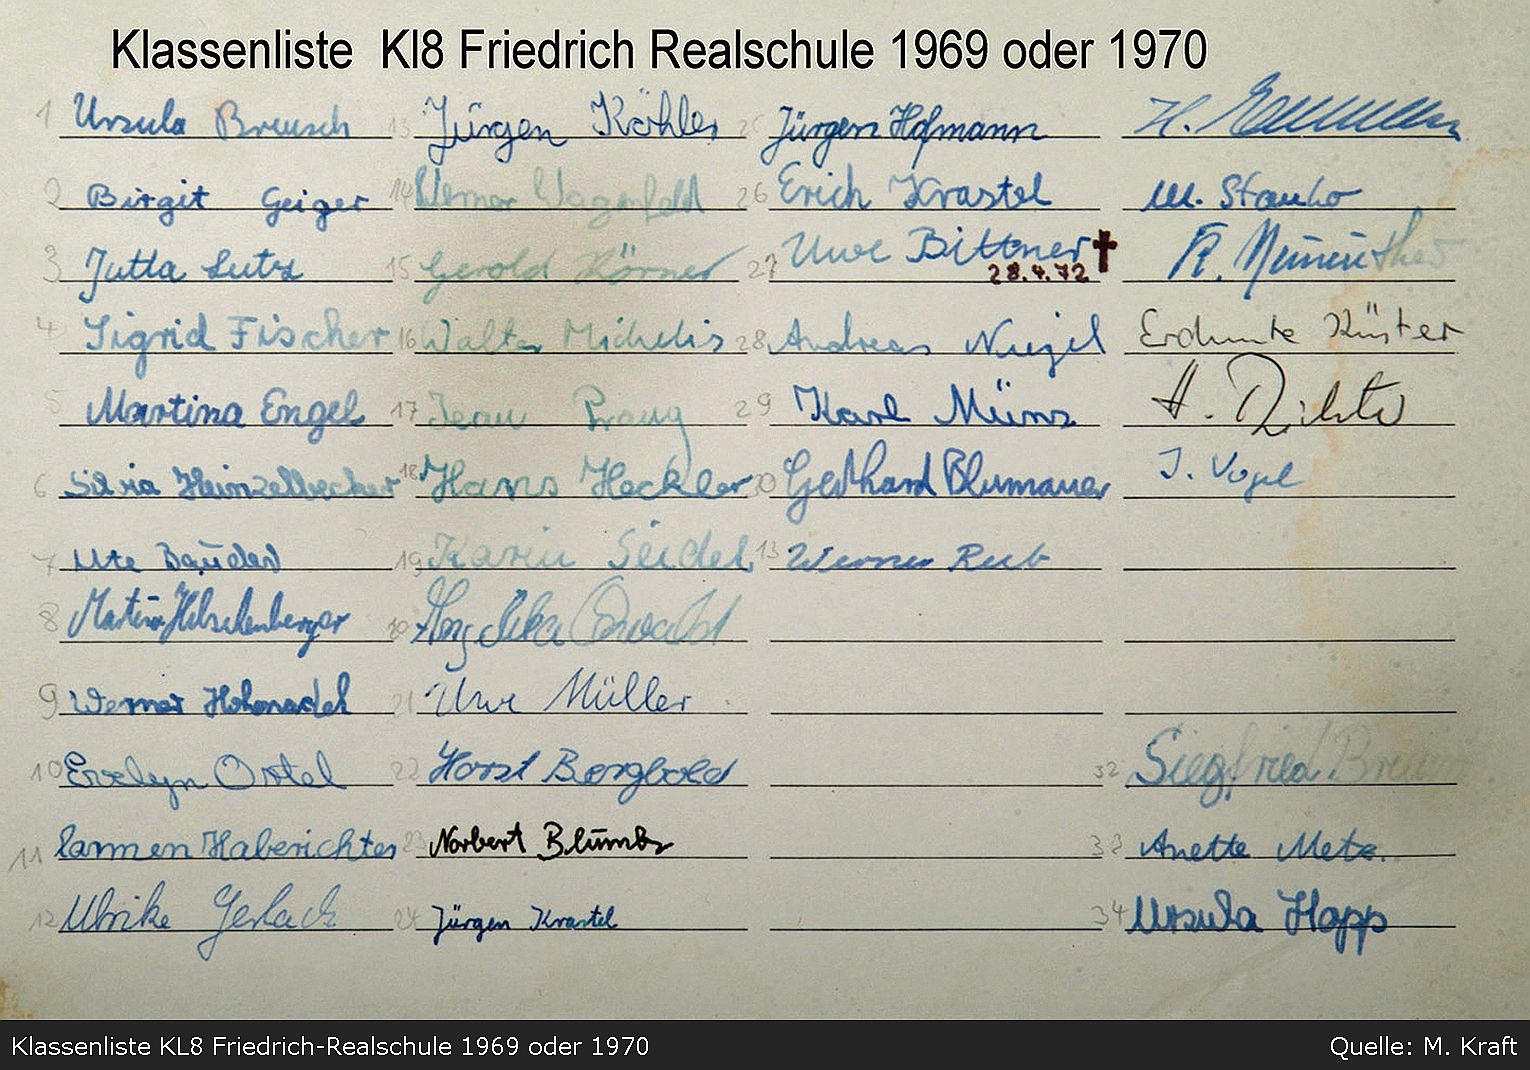 Klassenliste Kl8 Friedrich Realschule 1969 oder 1970
1 Ursula Breusch
2 Birgit Geiger
3 Jutta Lutz
4 Sigrid Fischer
5 Martina Engel
6 Silvia Heinzelbecker
7 Ute
8 Martina
9 Werner Hohenadel
10 Evelyn Ostel
11 Carmen Haberichter
12 Ulrike Gerlach
13 Jürgen Köhler
14 Werner Wagenfeld
15 Gerold Körner
16 Walter Michelis
17 Jean Prang
18 Hans Heckler
19 Karin Seidel
20 Angelika Oswald
21 Uwe Müller
22 Horst Bergbold
23 Norbert Blumbs
24 Jürgen Krastel
25 Jürgen Hofmann
26 Erich Krastel
27 Uwe Bittner
28.4.72
28 Andreas
29 Karl Münz
30 Gerhard Blumauer
13 Werner Reeb
H.
M. Stanko
R.
Erdmute Küster
H. Richter
I. Vogel
32 Siegfried
33 Anette Metz
34 Ursula Hopp
Klassenliste KL8 Friedrich-Realschule 1969 oder 1970
Quelle: M. Kraft